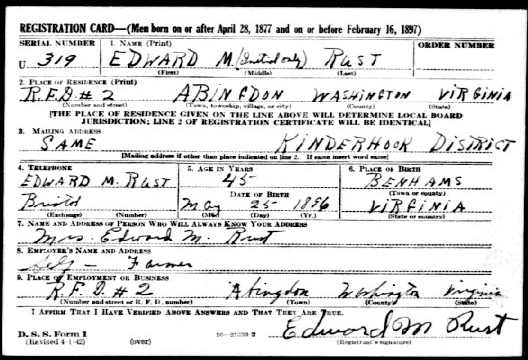 REGISTRATION CARD—(Men born on or after April 28, 1877 and on or before February 16, 1897)
SERIAL NUMBER 1. NAME (Print) ORDER NUMBER
U 319 EDWARD M. (Initial only) RUST
(First) (Middle) (Last)
2. PLACE OF RESIDENCE (Print)
R.F.D. # 2 ABINGDON WASHINGTON VIRGINIA
(Number and street) (Town, township, village, or city) (County) (State)
[THE PLACE OF RESIDENCE GIVEN ON THE LINE ABOVE WILL DETERMINE LOCAL BOARD
JURISDICTION; LINE 2 OF REGISTRATION CERTIFICATE WILL BE IDENTICAL]
3. MAILING ADDRESS
SAME KINDERHOOK DISTRICT
[Mailing address if other than place indicated on line 2. If same insert word same]
4. TELEPHONE 5. AGE IN YEARS 6. PLACE OF BIRTH
EDWARD M. RUST 45 BENHAMS
DATE OF BIRTH (Town or county)
May 25 1896 VIRGINIA
(Exchange) (Number) (Mo.) (Day) (Yr.) (State or country)
7. NAME AND ADDRESS OF PERSON WHO WILL ALWAYS KNOW YOUR ADDRESS
Mrs. Edward M. Rust
8. EMPLOYER'S NAME AND ADDRESS
Self — Farmer
9. PLACE OF EMPLOYMENT OR BUSINESS
R.F.D. # 2 Abingdon Washington Virginia
(Number and street or R. F. D. number) (Town) (County) (State)
I AFFIRM THAT I HAVE VERIFIED ABOVE ANSWERS AND THAT THEY ARE TRUE.
D. S. S. Form 1
(Revised 4-1-42) (over)
Edward M Rust
(Registrant's signature)